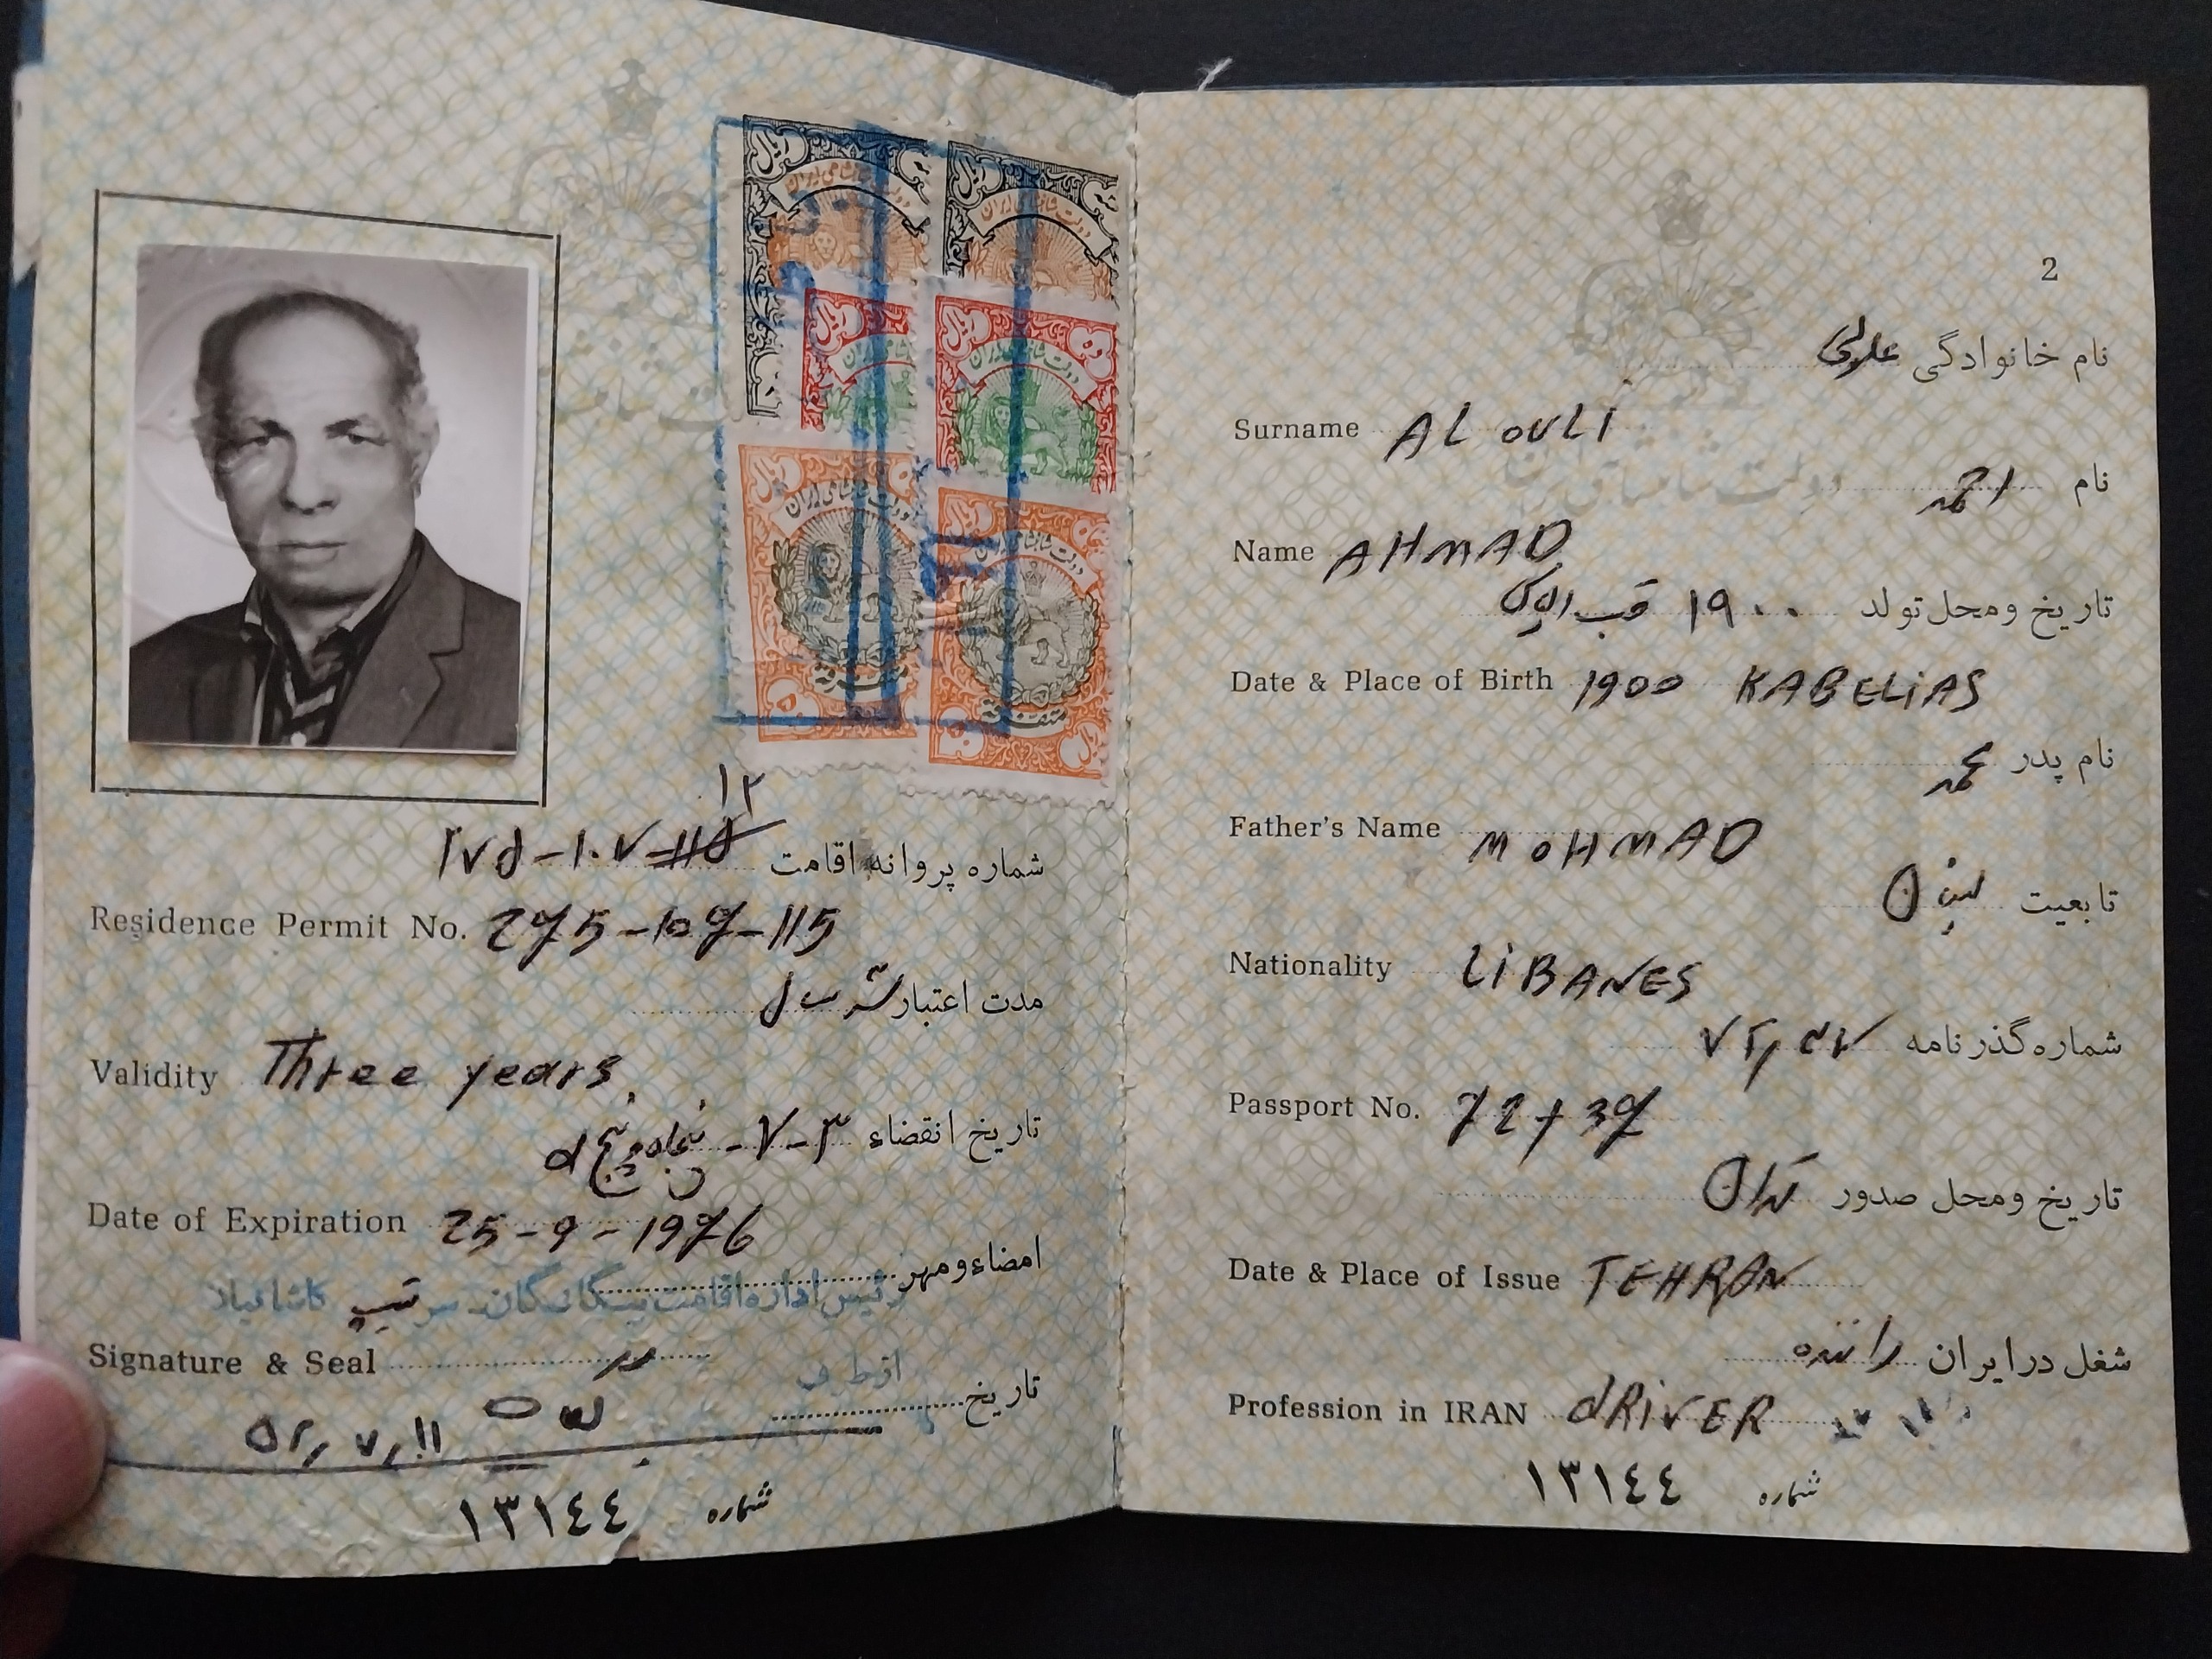 ۱۲
شماره پروانه اقامت ۱۱۵-۱۰۷-۲۷۵
Residence Permit No. 275-107-115
مدت اعتبار سه سال
Validity Three years
تاریخ انقضاء ۳-۷- پنجاه و پنج
Date of Expiration 25-9-1976
امضاء و مهر
رئیس اداره اقامت بیگانگان - سرتیپ
Signature & Seal
از طرف
تاریخ
۵۲,۷,۱۱
شماره ١٣١٤٤
دولت شاهنشاهی ایران
ریال
متفرقه
متفرقه
2
نام خانوادگی
Surname AL OULI
نام احمد
Name AHMAD
تاریخ و محل تولد ۱۹۰۰
Date & Place of Birth 1900 KABELIAS
نام پدر محمد
Father's Name MOHMAD
تابعیت لبنان
Nationality LIBANES
شماره گذرنامه
Passport No.
تاریخ و محل صدور تهران
Date & Place of Issue TEHRAN
شغل در ایران راننده
Profession in IRAN dRIVER
شماره ١٣١٤٤